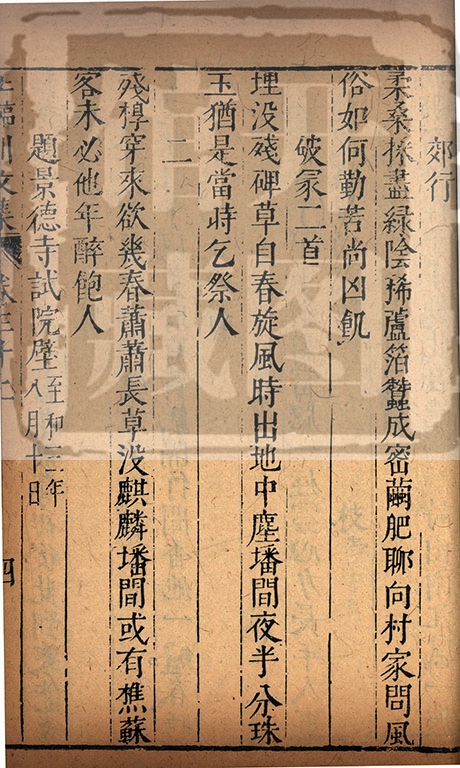 郊行
柔桑採盡緑陰稀蘆箔蠶成密繭肥聊向村家問風
俗如何勤苦尚凶飢
破冢二首
埋没殘碑草自春旋風時出地中塵墦間夜半分珠
玉猶是當時乞祭人
二
殘椁穿來欲幾春蕭蕭長草没麒麟墦間或有樵蘇
客未必他年醉飽人
題景德寺試院壁至和三年八月十日
王臨川文集 卷三十
四